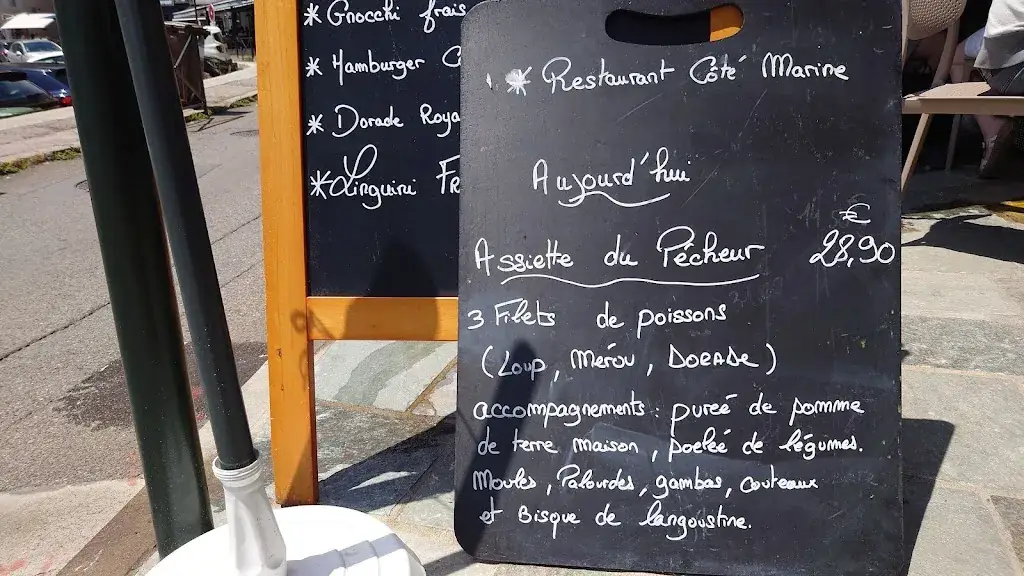 * Gnocchi frais
* Hamburger C
* Dorade Roya
* Linguini Fr
* Restaurant Côté Marine
Aujourd'hui
€
Assiette du Pêcheur 28,90
3 Filets de poissons
(Loup, Mérou, DORADE)
accompagnements : pureé de pomme
de terre maison, poeleé de légumes.
Moules, Palourdes, gambas, Couteaux
et Bisque de langoustine.